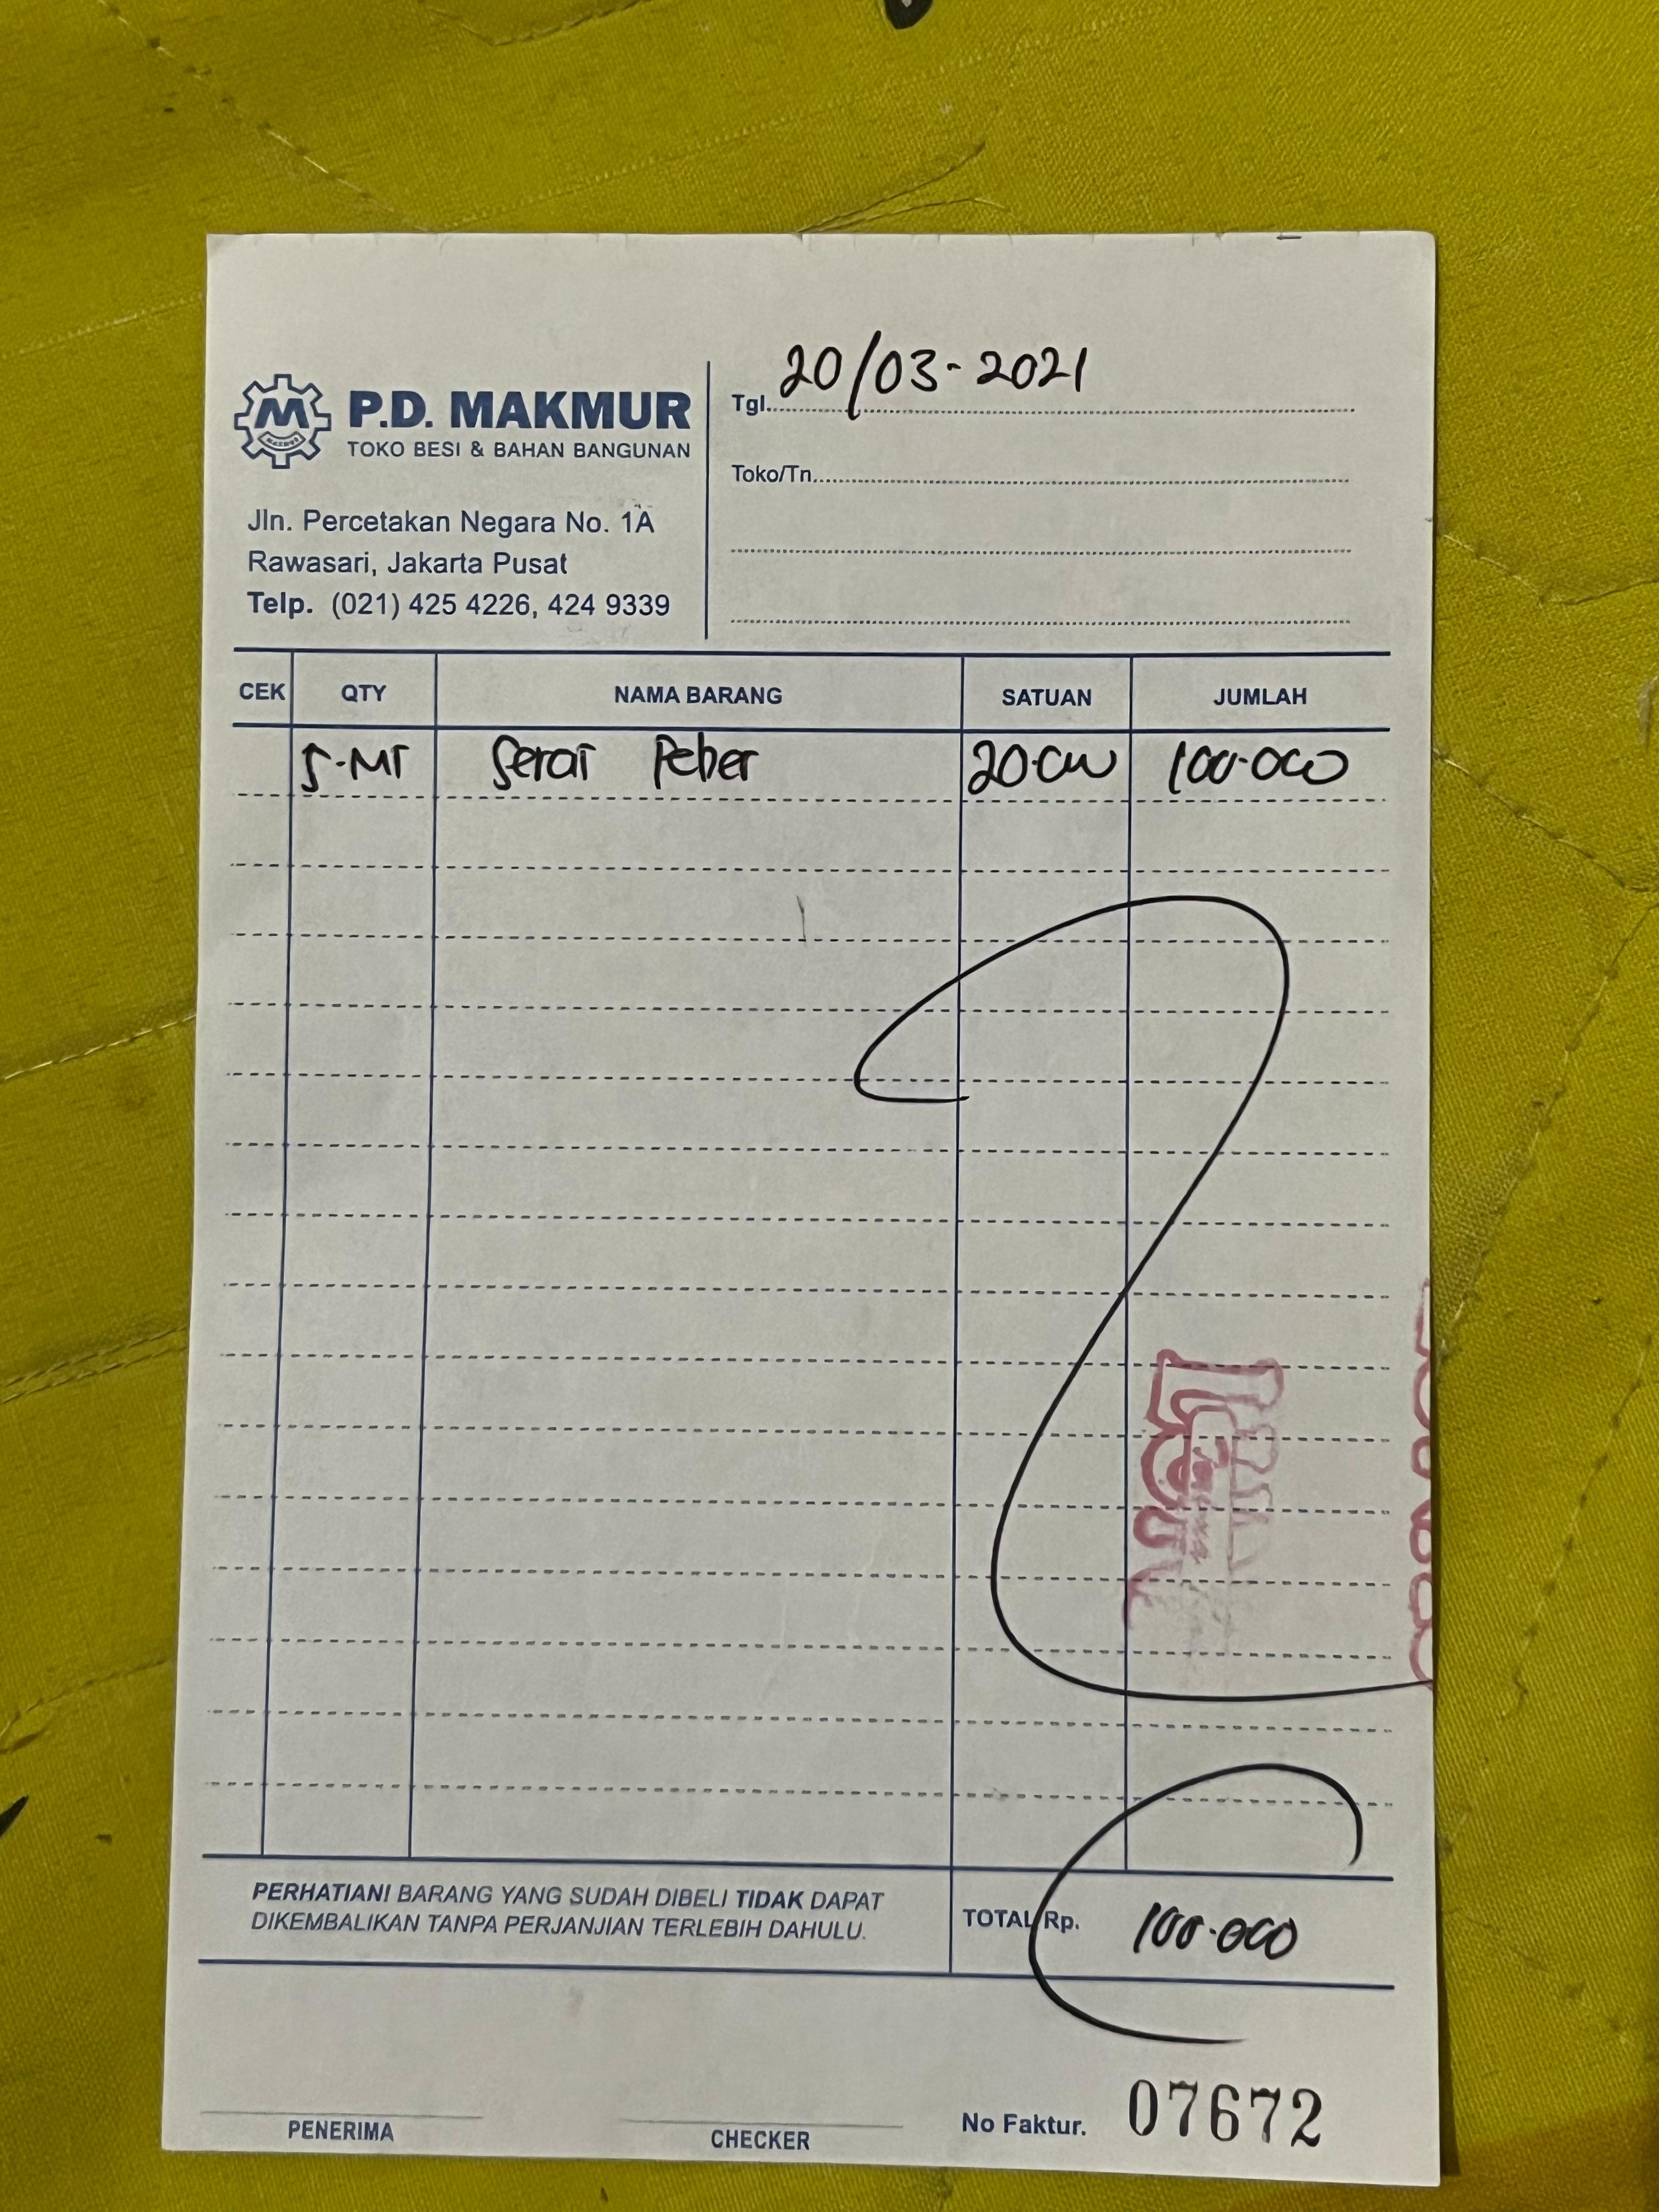 P.D. MAKMUR
TOKO BESI & BAHAN BANGUNAN
Jln. Percetakan Negara No. 1A
Rawasari, Jakarta Pusat
Telp. (021) 425 4226, 424 9339
Tgl. 20/03-2021
Toko/Tn.
CEK QTY NAMA BARANG SATUAN JUMLAH
5.Mt Serat Feber 20.000 100.000
PERHATIAN! BARANG YANG SUDAH DIBELI TIDAK DAPAT
DIKEMBALIKAN TANPA PERJANJIAN TERLEBIH DAHULU.
TOTAL Rp. 100.000
PENERIMA
CHECKER
No Faktur. 07672